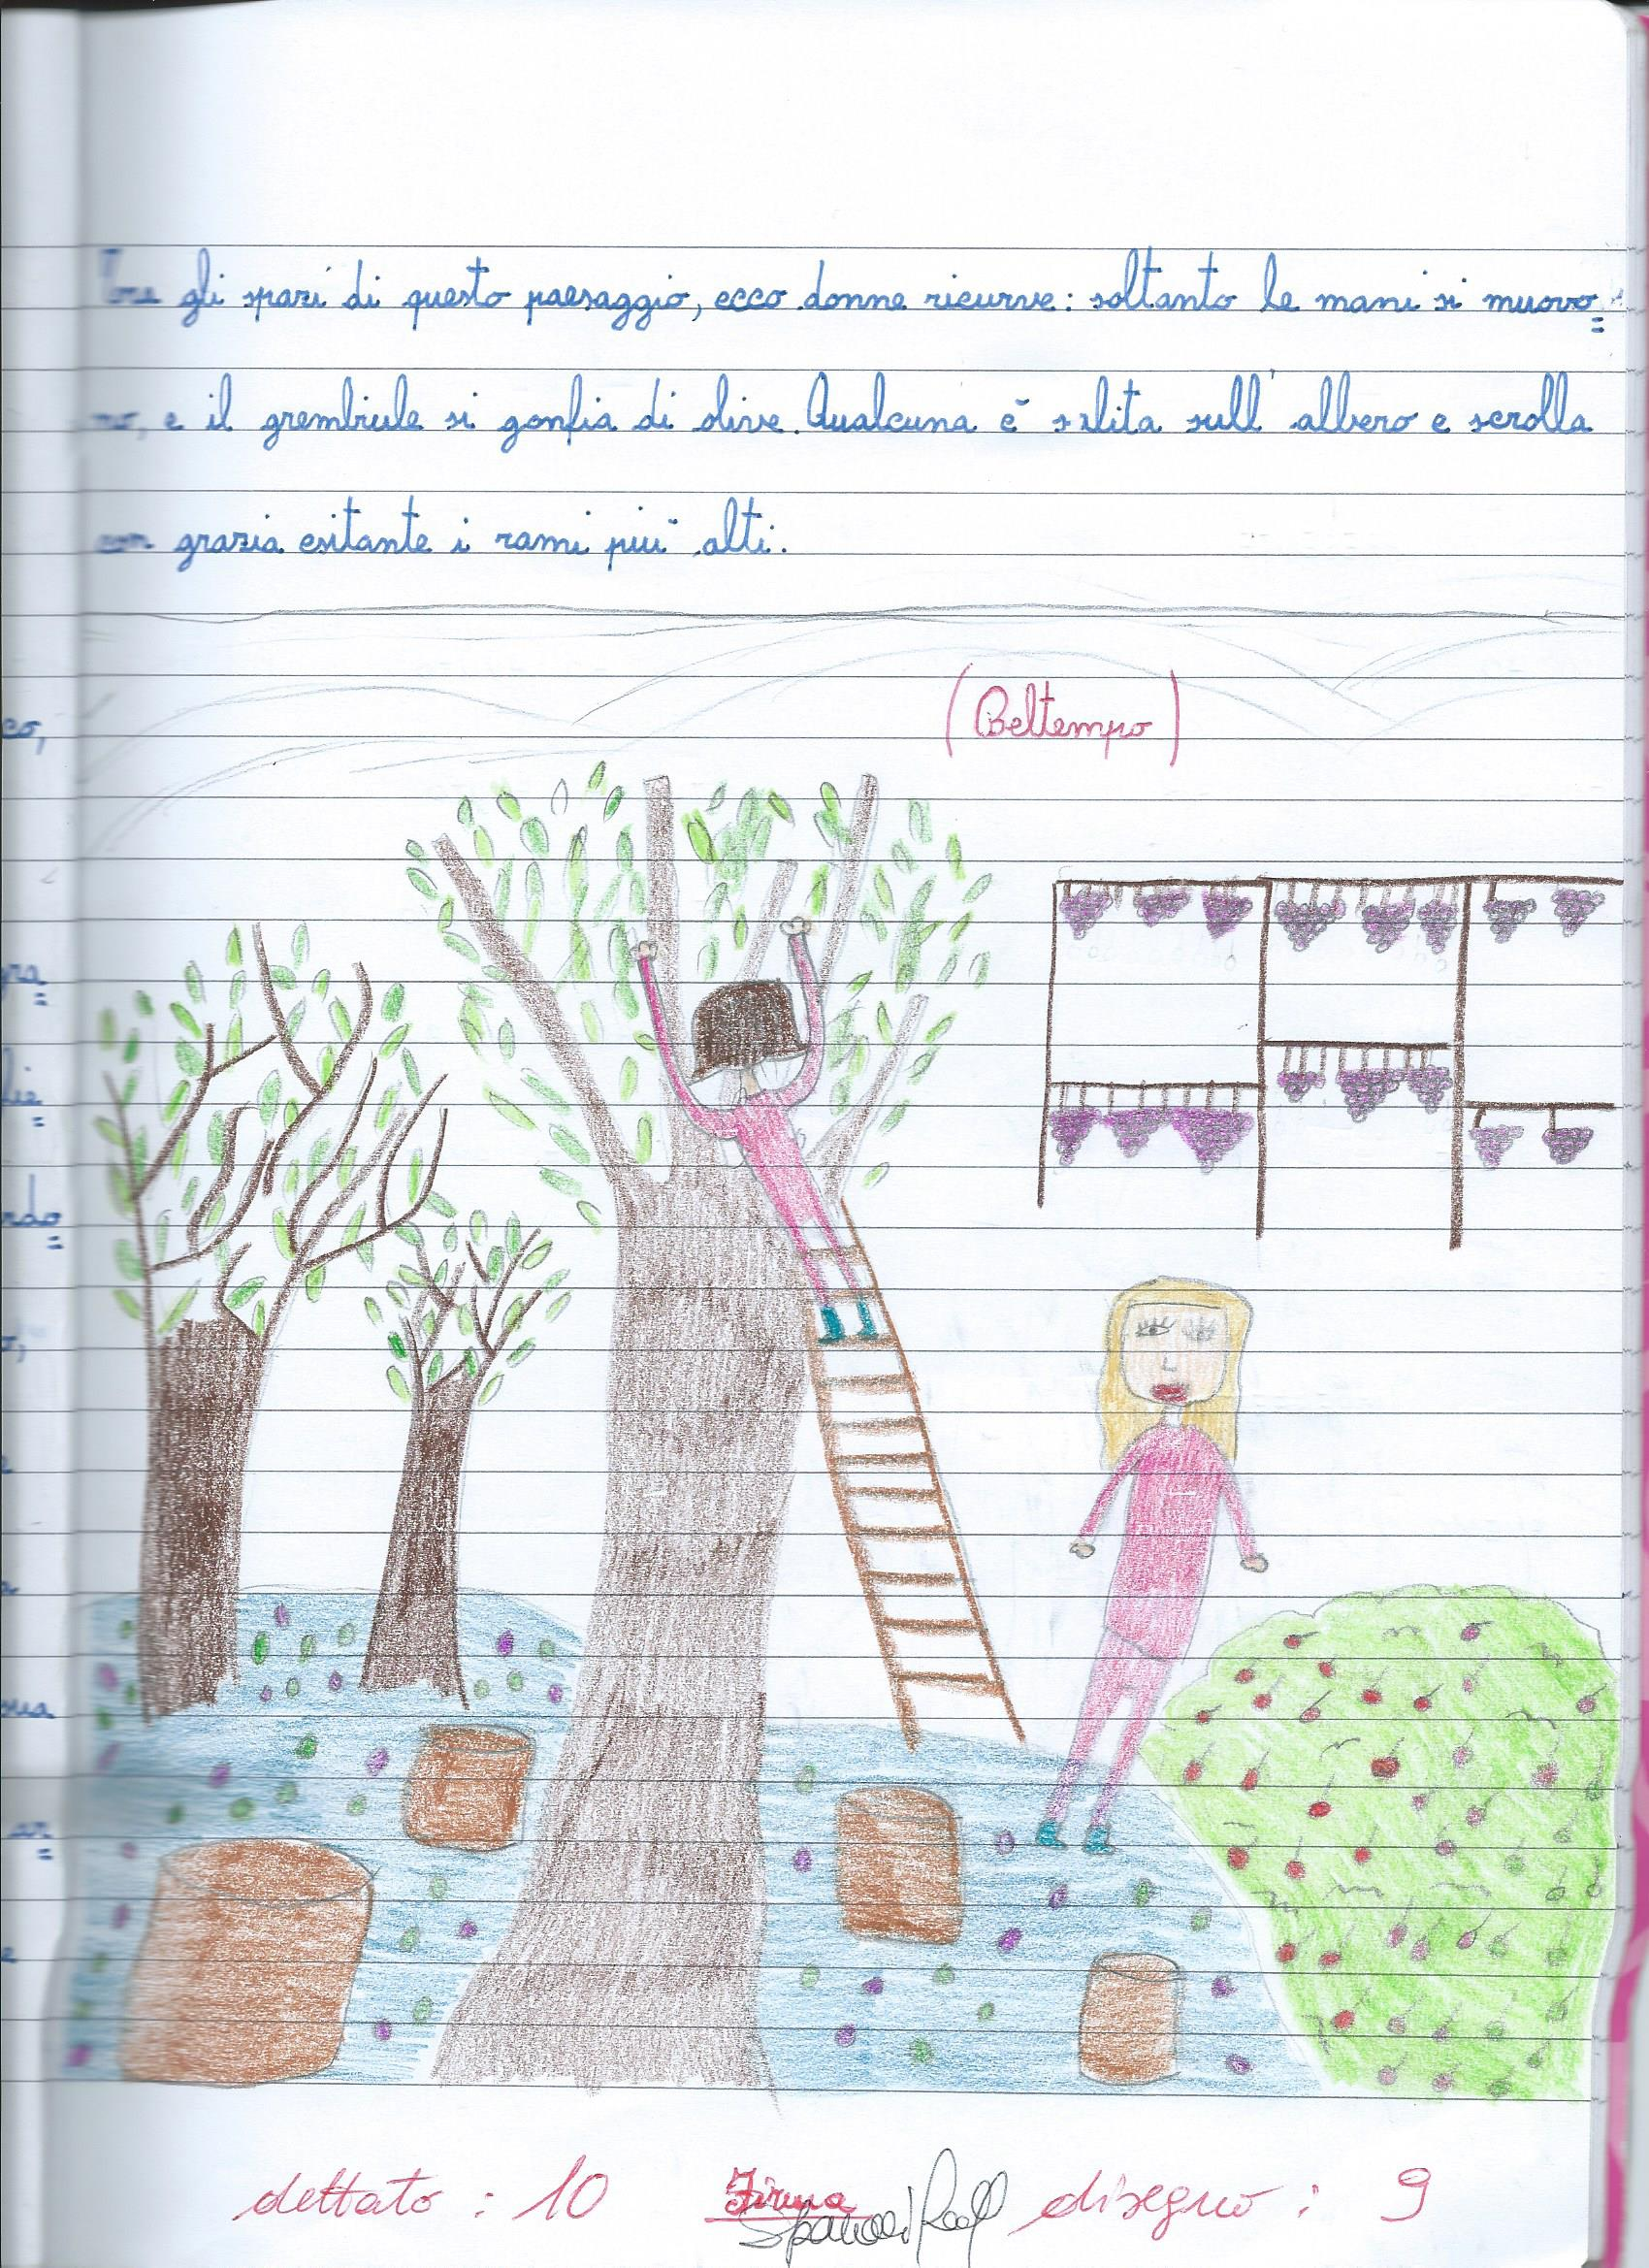 gli spazi di questo paesaggio, ecco donne ricurve: soltanto le mani si muovo=
no, e il grembiule si gonfia di olive. Qualcuna è salita sull'albero e scrolla
con grazia esitante i rami più alti.
(Beltempo)
co,
gra=
lie=
rdo=
dettato: 10 Firma disegno: 9